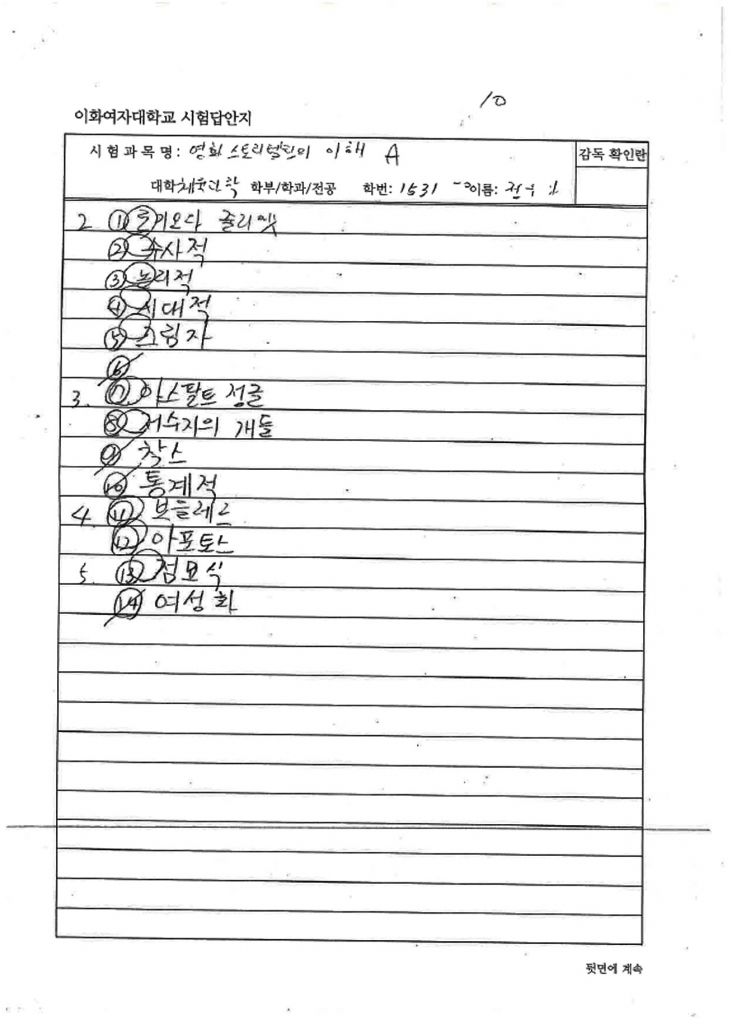 10
이화여자대학교 시험답안지
시험과목명: 영화스토리텔링의 이해 A 감독 확인란
대학 체육과학 학부/학과/전공 학번: 1531 이름:
2 ① 로미오와 줄리엣
② 수사적
③ 논리적
④ 시대적
⑤ 그림자
⑥
3. ⑦ 아스팔트 정글
⑧ 저수지의 개들
⑨ 착스
⑩ 통계적
4. ⑪ 보들레르
⑫ 아포토스
5. ⑬ 점묘식
⑭ 여성화
뒷면에 계속